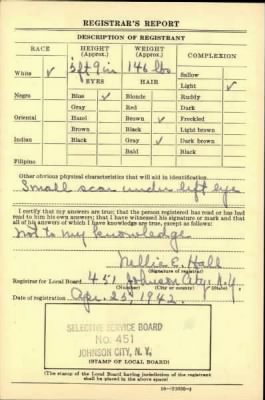 REGISTRAR'S REPORT
DESCRIPTION OF REGISTRANT
RACE HEIGHT (Approx.) WEIGHT (Approx.) COMPLEXION
White ✓ 5 ft 9 in 146 lbs Sallow
EYES HAIR Light ✓
Negro Blue ✓ Blonde Ruddy
Gray Red Dark
Oriental Hazel Brown ✓ Freckled
Brown Black Light brown
Indian Black Gray ✓ Dark brown
Bald Black
Filipino
Other obvious physical characteristics that will aid in identification
Small scar under left eye
I certify that my answers are true; that the person registered has read or has had
read to him his own answers; that I have witnessed his signature or mark and that
all of his answers of which I have knowledge are true, except as follows:
Not to my knowledge
Nellie E. Hall
(Signature of registrar)
Registrar for Local Board 451 Johnson City, N.Y.
(Number) (City or county) (State)
Date of registration Apr. 25, 1942.
SELECTIVE SERVICE BOARD
No. 451
JOHNSON CITY, N. Y.
(STAMP OF LOCAL BOARD)
(The stamp of the Local Board having jurisdiction of the registrant
shall be placed in the above space)